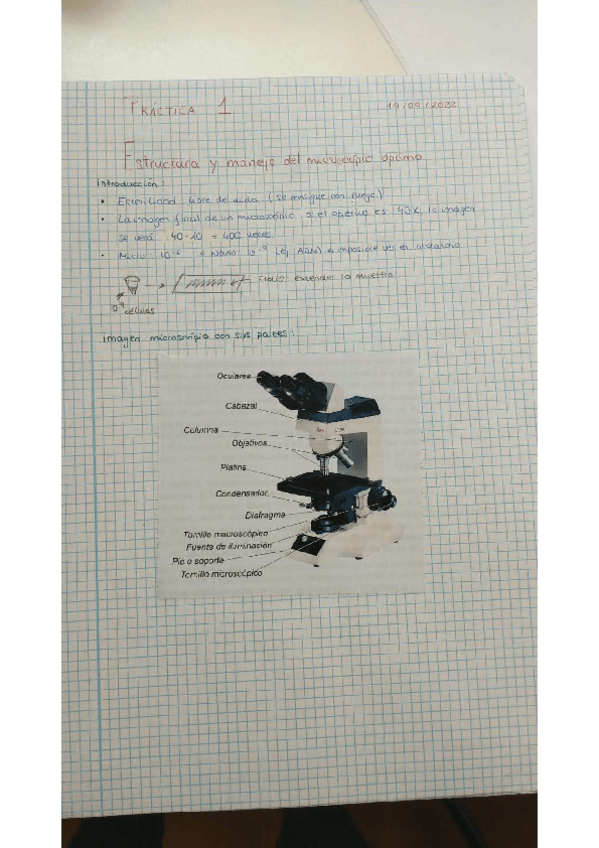 PRÁCTICA 1
19/09/2022
Estructura y manejo del microscopio óptimo
introducción:
• Esterilidad libre de vida (se consigue con fuego)
• La imagen final de un microscopio, si el objetivo es 40X, la imagen
se verá 40·10 = 400 veces.
• Micro 10⁻⁶ Nano 10⁻⁹ (ej ADN) imposible ver en
extender la muestra
células
imagen microscopio con sus partes:
Oculares
Cabezal
Columna
Objetivos
Platina
Condensador
Diafragma
Tornillo macroscópico
Fuente de iluminación
Pie o soporte
Tornillo microscópico